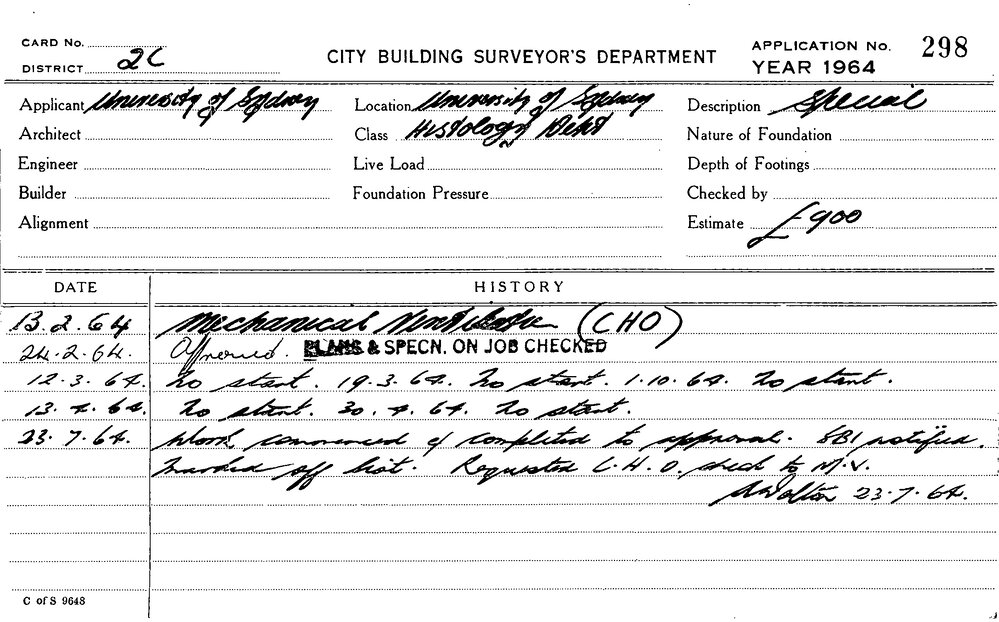 CARD No.
DISTRICT 2C
CITY BUILDING SURVEYOR'S DEPARTMENT
APPLICATION No. 298
YEAR 1964
Applicant University of Sydney
Location University of Sydney
Description Special
Architect
Class Histology Dept
Nature of Foundation
Engineer
Live Load
Depth of Footings
Builder
Foundation Pressure
Checked by
Alignment
Estimate £900
DATE HISTORY
13.2.64 Mechanical Ventilation (CHO)
24.2.64. Approved. PLANS & SPECN. ON JOB CHECKED
12.3.64. No start. 19.3.64. No start. 1.10.64. No start.
13.4.64. No start. 30.4.64. No start.
23.7.64. Work commenced & completed to approval. SBI notified.
marked off list. Requested C.H.O. to M.V.
23.7.64.
C of S 9648